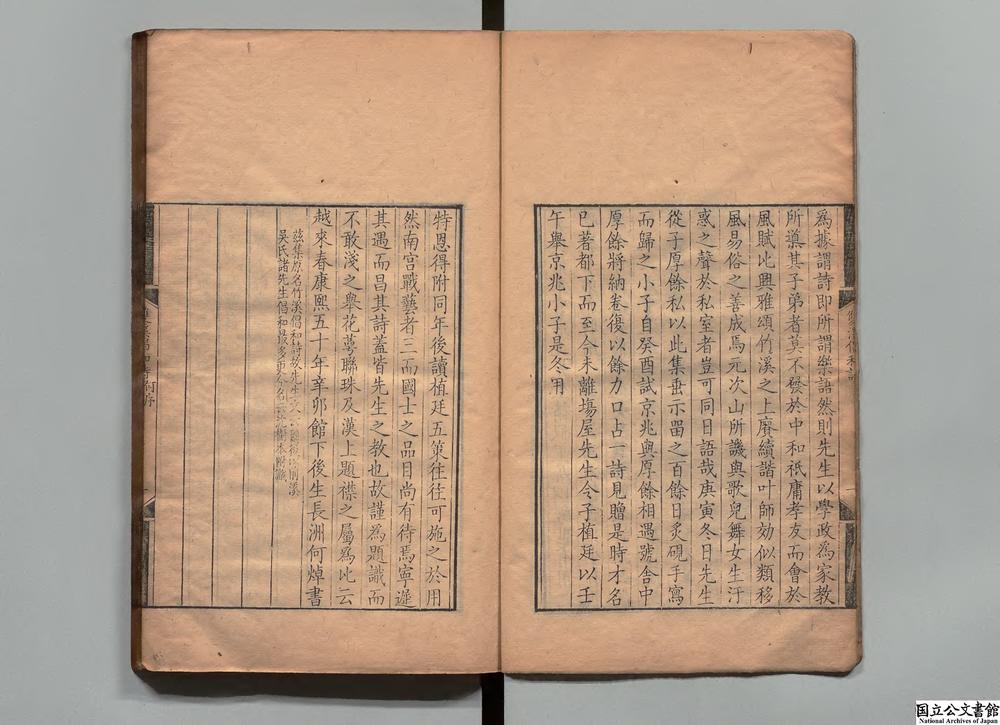 為據謂詩即所謂樂語然則先生以學政為家教
所導其子弟者莫不發於中和祇庸孝友而會於
風賦比興雅頌竹溪之上賡續諧叶師効似類移
風易俗之善成焉元次山所譏與歌兒舞女生汙
惑之聲於私室者豈可同日語哉庚寅冬日先生
從子厚餘私以此集垂示畱之百餘日炙硯手寫
而歸之小子自癸酉試京兆與厚餘相遇號舍中
厚餘將納卷復以餘力口占一詩見贈是時才名
已著都下而至今未離塲屋先生令子植廷以壬
午舉京兆小子是冬用
特恩得附同年後讀植廷五策往往可施之於用
然南宮戰藝者三而國士之品目尚有待焉寧遲
其遇而昌其詩蓋皆先生之教也故謹為題識而
不敢淺之舉花萼聯珠及漢上題襟之屬為比云
越來春康熙五十年辛卯館下後生長洲何焯書
茲集原名竹溪倡和詩故先生文
吳氏諸先生倡和最多更今名
国立公文書館
National Archives of Japan